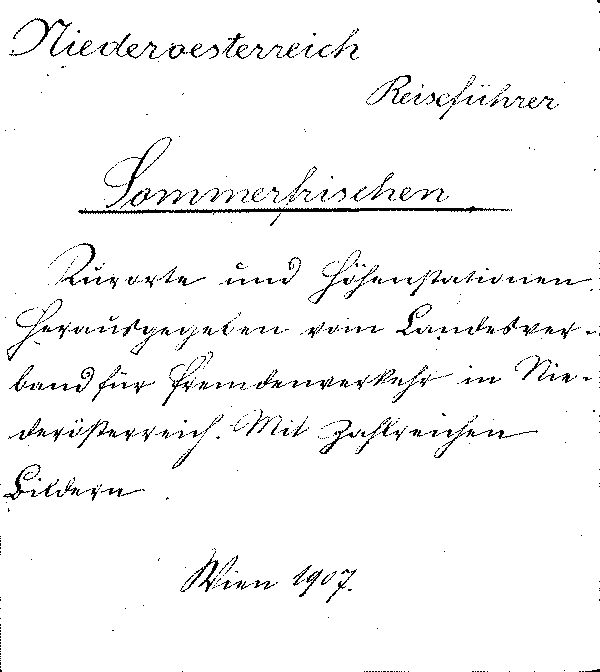 Niederoesterreich
Reiseführer
Sommerfrischen
Kurorte und Höhenstationen
Herausgegeben vom Landesver-
band für Fremdenverkehr in Nie-
derösterreich. Mit zahlreichen
Bildern
Wien 1907.